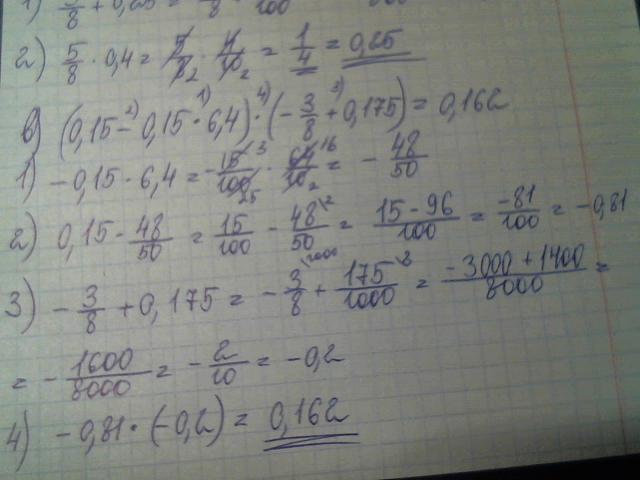 1) 5/8 + 0,25 = /8 100
2) 5/8 · 0,4 = 5/8 2 · 4/10 2 = 1/4 = 0,25
в) (0,15 -²⁾ 0,15 ·¹⁾ 6,4) ·⁴⁾ (- 3/8 +³⁾ 0,175) = 0,162
1) - 0,15 · 6,4 = - 15 3/100 25 · 64 16/10 2 = - 48/50
2) 0,15 - 48/50 = 15/100 - 48\2/50 = 15 - 96/100 = -81/100 = -0,81
3) - 3/8 + 0,175 = - 3\1000/8 + 175\8/1000 = -3000 + 1400/8000 =
= - 1600/8000 = - 2/10 = -0,2
4) - 0,81 · (-0,2) = 0,162